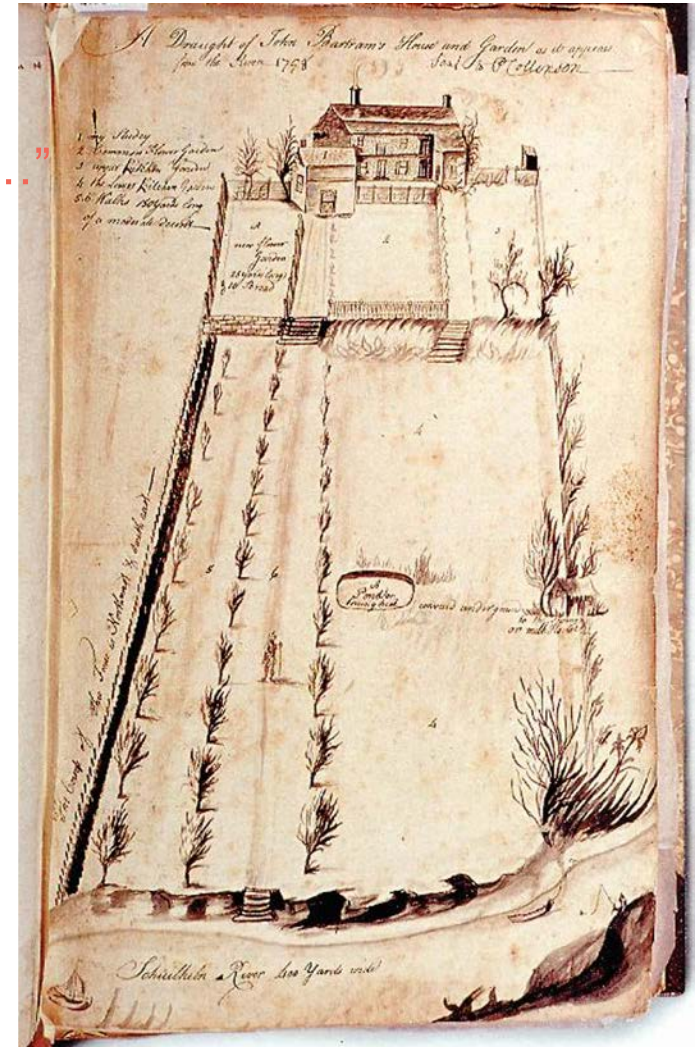 A Draught of John Bartram's House and Garden as it appears
from the River 1758 Sent to P Collinson
1 my Study
2 Common Flower Garden
3 upper Kitchen Garden
4 the Lower Kitchen Garden
5.6 Walks 150 yards long
of a moderate descent
1
A
new flower
Garden
25 yards long
& 10 Broad
2
3
4
5
6
A
Pond or
Spring head
convaid under ground
to the Spring
or milk House
4
of the Trees is Northwest & South east
Schuilkiln River 400 Yards wide
”